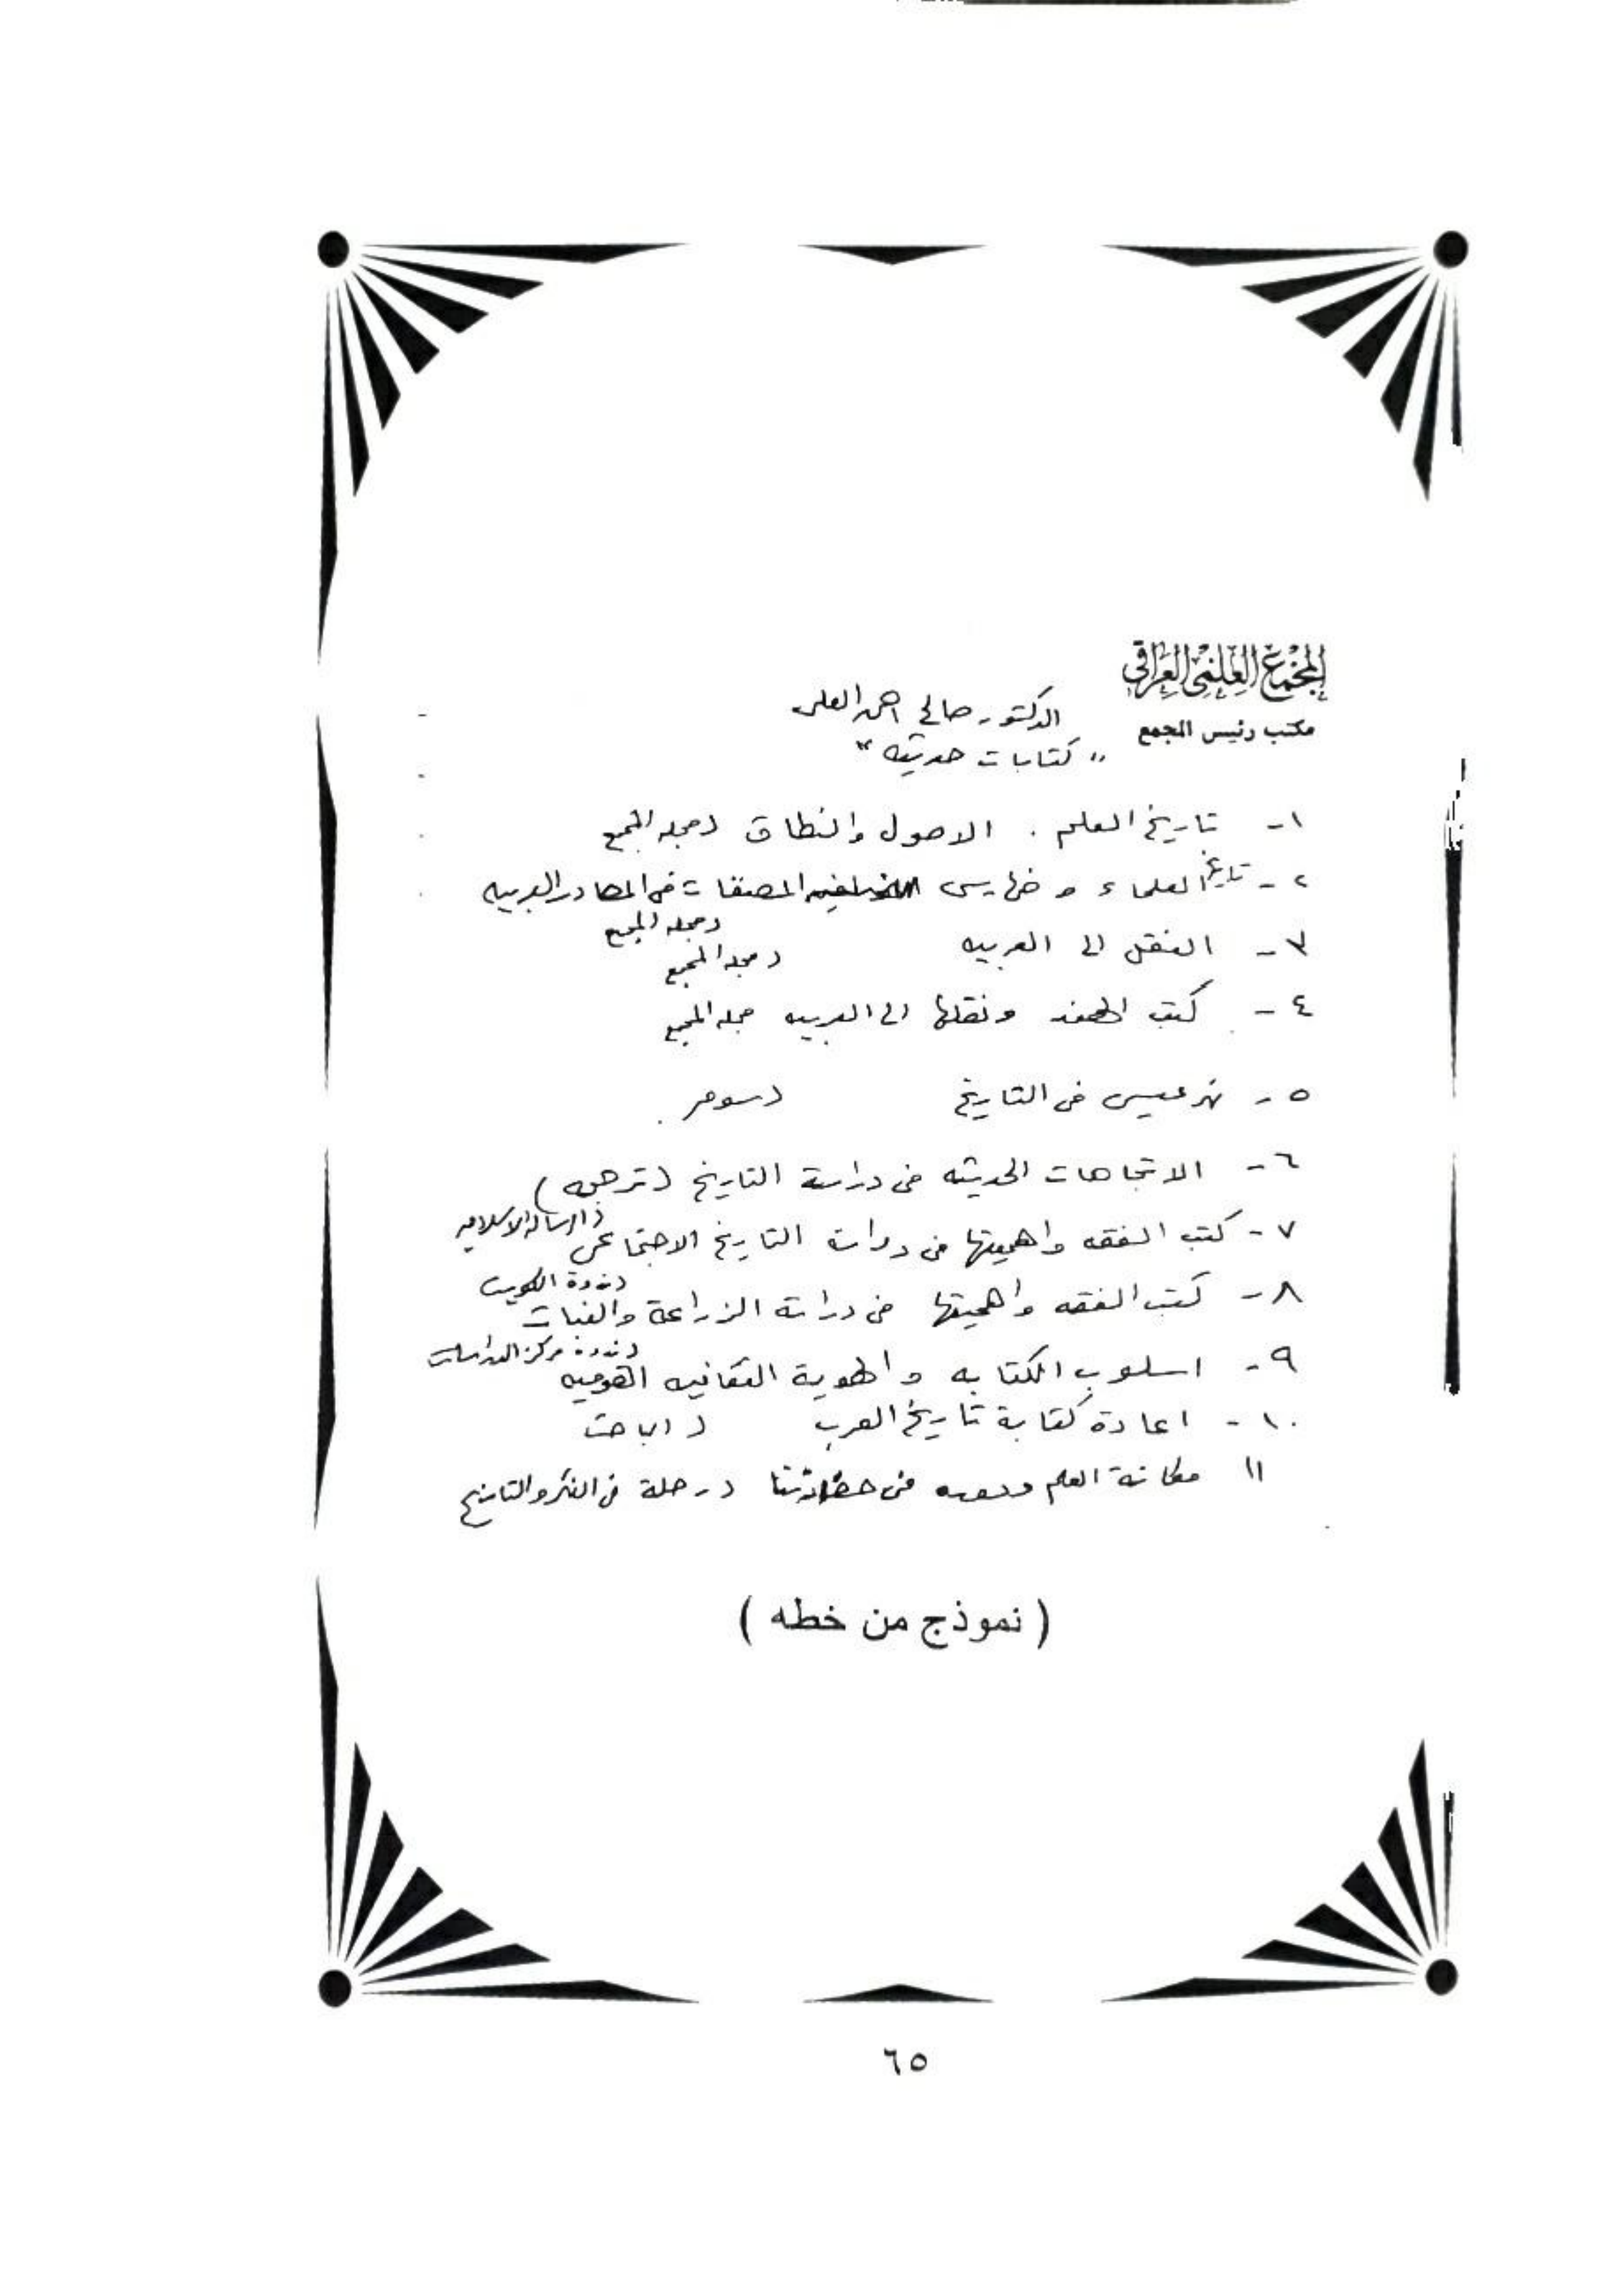 المجمع العلمي العراقي
مكتب رئيس المجمع
الدكتور صالح احمد العلي
"كتابات حديثه"
١- تاريخ العلم . الاصول والنطاق (مجله المجمع
٢- تاريخ العلماء و فهارس المصنفات في المصادر العربيه
(مجله المجمع
٣- النقل الى العربيه (مجله المجمع
٤- كتب الهند ونقلها الى العربيه مجله المجمع
٥- نهر عيسى في التاريخ (سومر
٦- الاتجاهات الحديثه في دراسة التاريخ (ترجمه)
٧- كتب الفقه واهميتها في دراسة التاريخ الاجتماعي (الرساله الاسلاميه
٨- كتب الفقه واهميتها في دراسة الزراعة والنبات (ندوة الكويت
٩- اسلوب الكتابه والهوية الثقافيه القوميه (ندوة مركز الدراسات
١٠- اعادة كتابة تاريخ العرب (الباحث
١١ مكانة العلم في حضارتنا (رحلة في الفكر والتاريخ
( نموذج من خطه )
٦٥